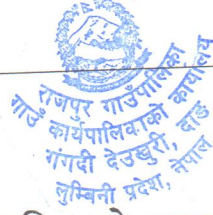 राजपुर गाउँपालिका
गाउँ कार्यपालिकाको कार्यालय
गंगदी देउखुरी, दाङ
लुम्बिनी प्रदेश, नेपाल